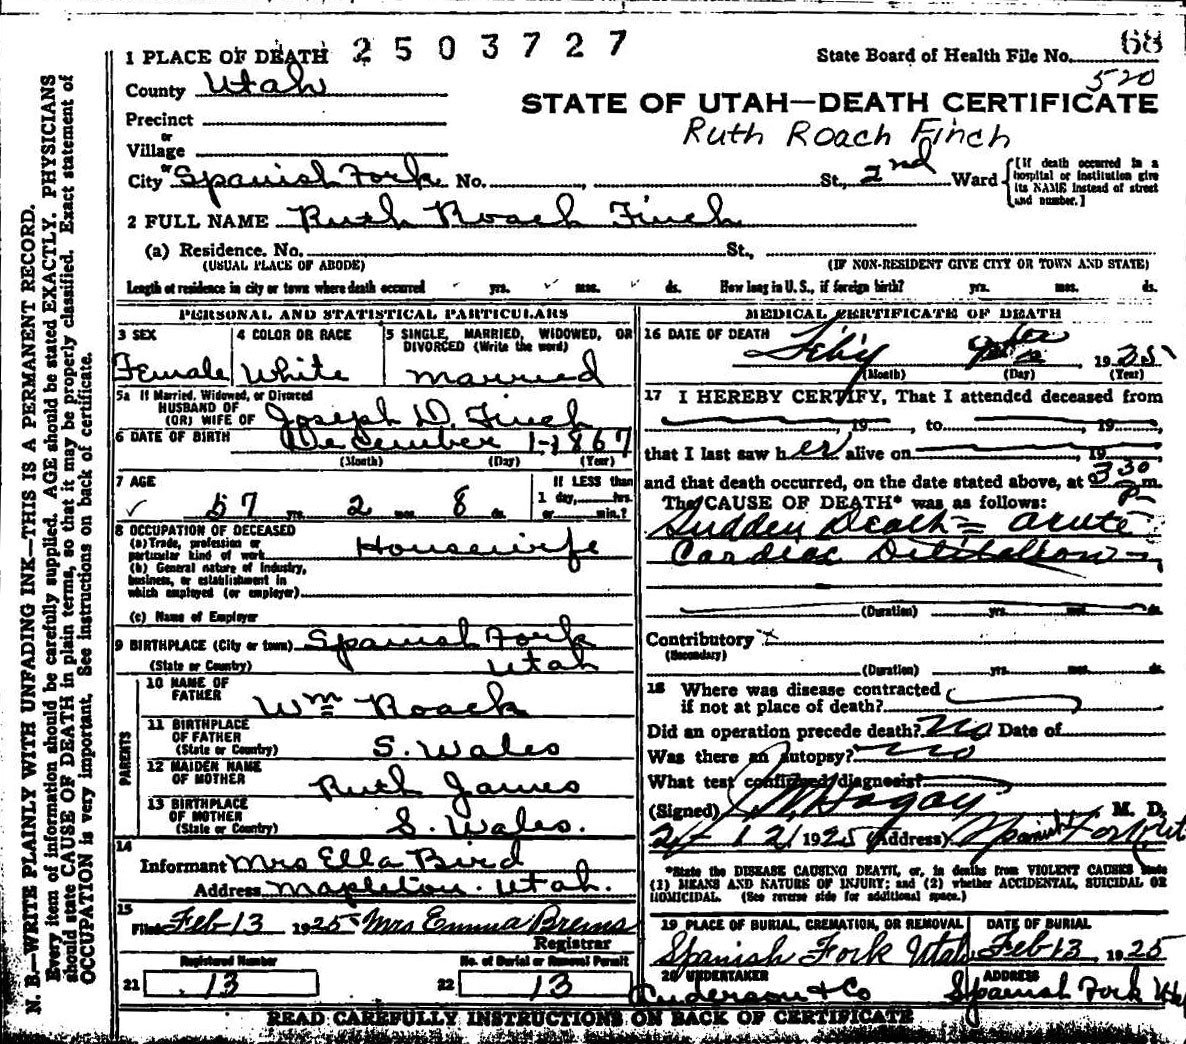 1 PLACE OF DEATH 2503727
State Board of Health File No. 68
520
County Utah
STATE OF UTAH—DEATH CERTIFICATE
Precinct
Ruth Roach Finch
or
Village
or
City Spanish Fork No. , St., 2nd Ward
[If death occurred in a
hospital or institution give
its NAME instead of street
and number.]
2 FULL NAME Ruth Roach Finch
(a) Residence. No. St.,
(USUAL PLACE OF ABODE) (IF NON-RESIDENT GIVE CITY OR TOWN AND STATE)
Length of residence in city or town where death occurred yrs. mos. ds. How long in U. S., if foreign birth? yrs. mos. ds.
PERSONAL AND STATISTICAL PARTICULARS
3 SEX
Female
4 COLOR OR RACE
White
5 SINGLE, MARRIED, WIDOWED, OR
DIVORCED (Write the word)
Married
5a If Married, Widowed, or Divorced
HUSBAND OF
(OR) WIFE OF Joseph D. Finch
6 DATE OF BIRTH December 1-1867
(Month) (Day) (Year)
7 AGE
57 yrs. 2 mos. 8 ds.
If LESS than
1 day, hrs.
or min.?
8 OCCUPATION OF DECEASED
(a) Trade, profession or
particular kind of work Housewife
(b) General nature of industry,
business, or establishment in
which employed (or employer)
(c) Name of Employer
9 BIRTHPLACE (City or town) Spanish Fork
(State or Country) Utah
PARENTS
10 NAME OF
FATHER Wm Roach
11 BIRTHPLACE
OF FATHER
(State or Country) S. Wales
12 MAIDEN NAME
OF MOTHER Ruth James
13 BIRTHPLACE
OF MOTHER
(State or Country) S. Wales.
14
Informant Mrs Ella Bird
Address Mapleton. Utah.
15
Filed Feb 13 1925 Mrs Emma Brems
Registrar
Registered Number
21 13
No. of Burial or Removal Permit
22 13
MEDICAL CERTIFICATE OF DEATH
16 DATE OF DEATH
Feb'y 1925
(Month) (Day) (Year)
17 I HEREBY CERTIFY, That I attended deceased from
, 19 , to , 19 ,
that I last saw her alive on , 19
and that death occurred, on the date stated above, at 3 30 P m.
The CAUSE OF DEATH* was as follows:
Sudden Death = acute
Cardiac Dilitation
(Duration) yrs. mos. ds.
Contributory
(Secondary)
(Duration) yrs. mos. ds.
18 Where was disease contracted
if not at place of death?
Did an operation precede death? No Date of
Was there an autopsy? No
What test confirmed diagnosis?
(Signed) Hagan M. D.
2/12/1925 (Address) Spanish Fork Ut
*State the DISEASE CAUSING DEATH, or, in deaths from VIOLENT CAUSES state
(1) MEANS AND NATURE OF INJURY; and (2) whether ACCIDENTAL, SUICIDAL OR
HOMICIDAL. (See reverse side for additional space.)
19 PLACE OF BURIAL, CREMATION, OR REMOVAL
Spanish Fork Utah
DATE OF BURIAL
Feb 13, 1925
20 UNDERTAKER
Anderson & Co
ADDRESS
Spanish Fork Utah
READ CAREFULLY INSTRUCTIONS ON BACK OF CERTIFICATE
N. B.—WRITE PLAINLY WITH UNFADING INK—THIS IS A PERMANENT RECORD.
Every item of information should be carefully supplied. AGE should be stated EXACTLY. PHYSICIANS
should state CAUSE OF DEATH in plain terms, so that it may be properly classified. Exact statement of
OCCUPATION is very important. See instructions on back of certificate.